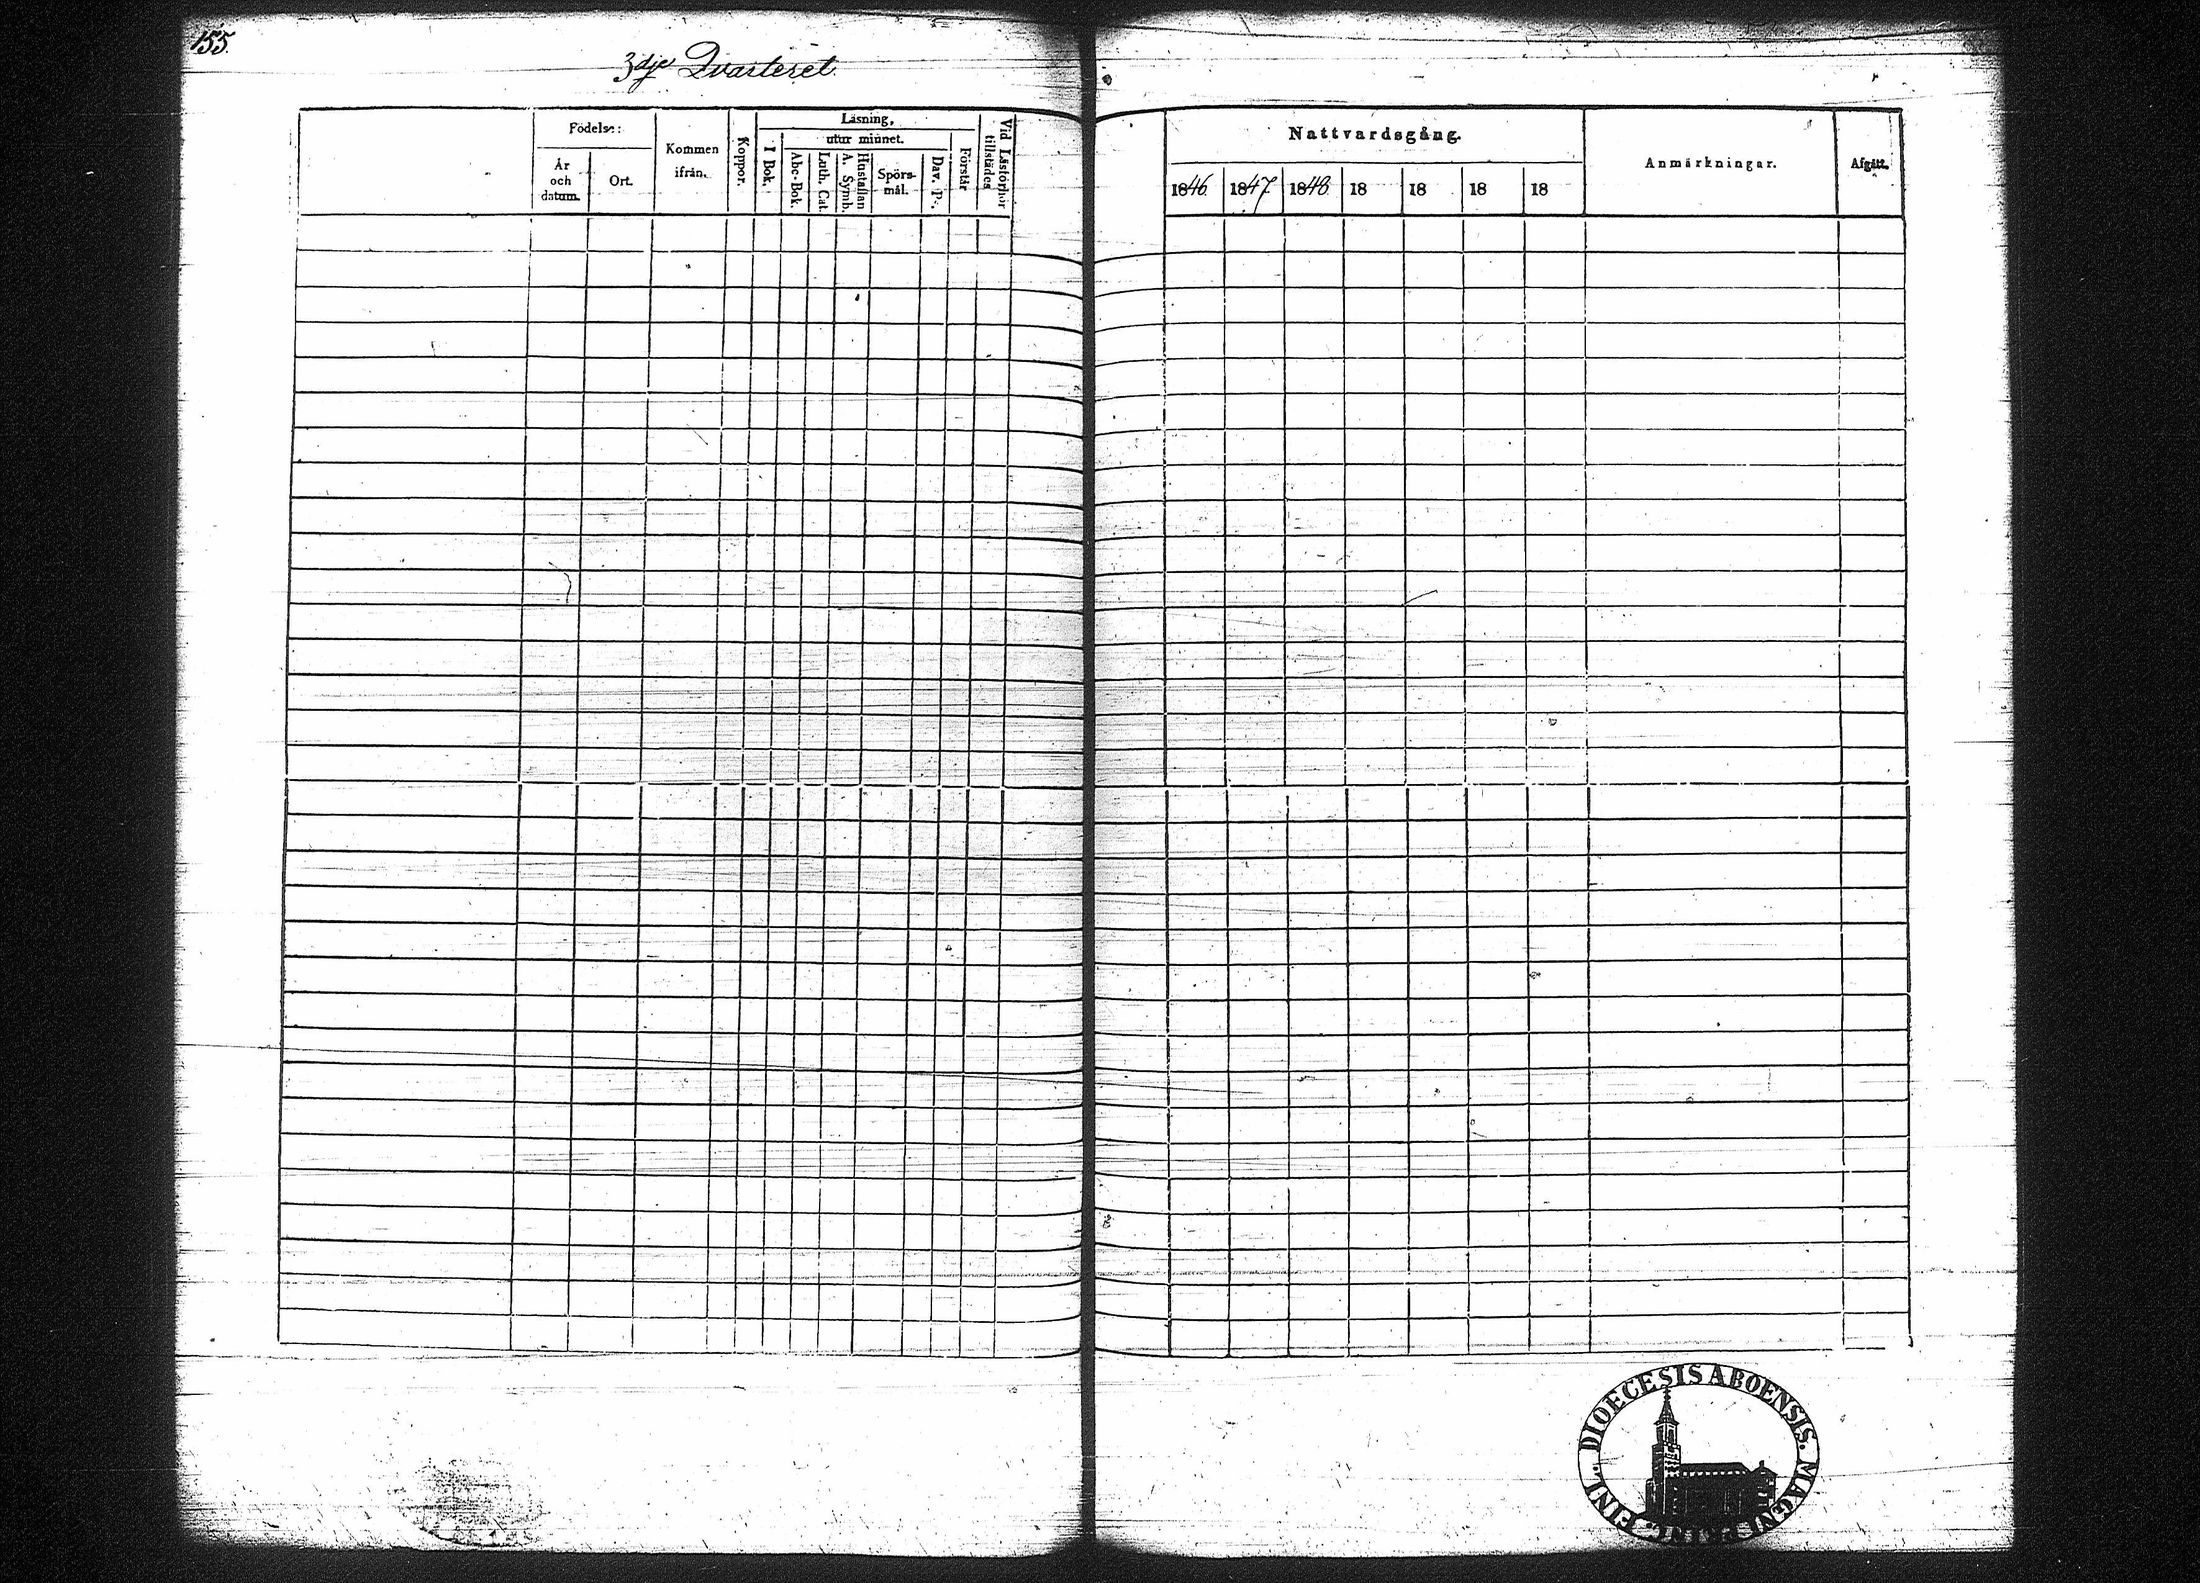 155.
3dje Qvarteret.
Födelse:
År
och
datum.
Ort.
Kommen
ifrån.
Koppor.
Läsning,
utur minnet.
I Bok.
Abc-Bok.
Luth. Cat.
Hustaflan
A. Symb.
Spörs-
mål.
Dav. Ps.
Förstår
Vid Läsförhör
tillstädes
Nattvardsgång.
1846 1847 1848 18 18 18 18
Anmärkningar.
Afgått.
DIOECESIS ABOENSIS. MAGNI PRINC. FINL.